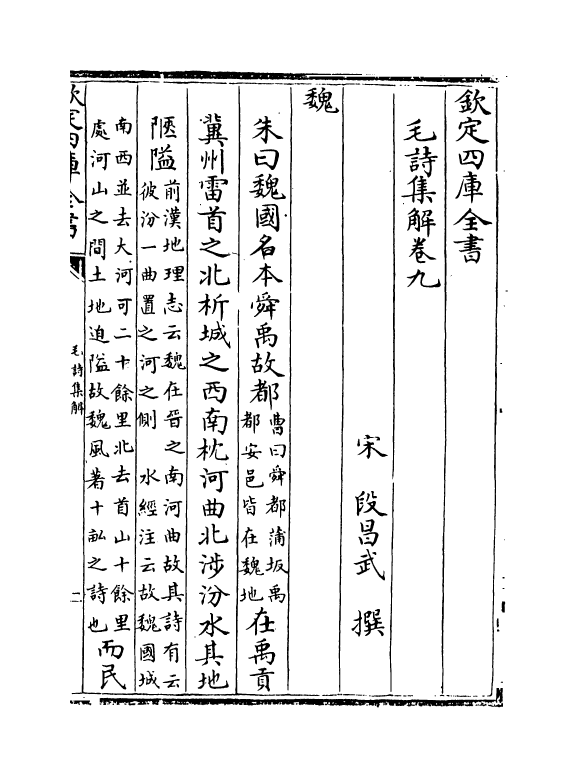 欽定四庫全書
毛詩集解卷九
宋 段昌武 撰
魏
朱曰魏國名本舜禹故都曹曰舜都蒲坂禹都安邑皆在魏地在禹貢
冀州雷首之北析城之西南枕河曲北涉汾水其地
陿隘前漢地理志云魏在晉之南河曲故其詩有云彼汾一曲置之河之側 水經注云故魏國城
南西並去大河可二十餘里北去首山十餘里處河山之間土地迫隘故魏風著十畝之詩也而民
欽定四庫全書
毛詩集解
二